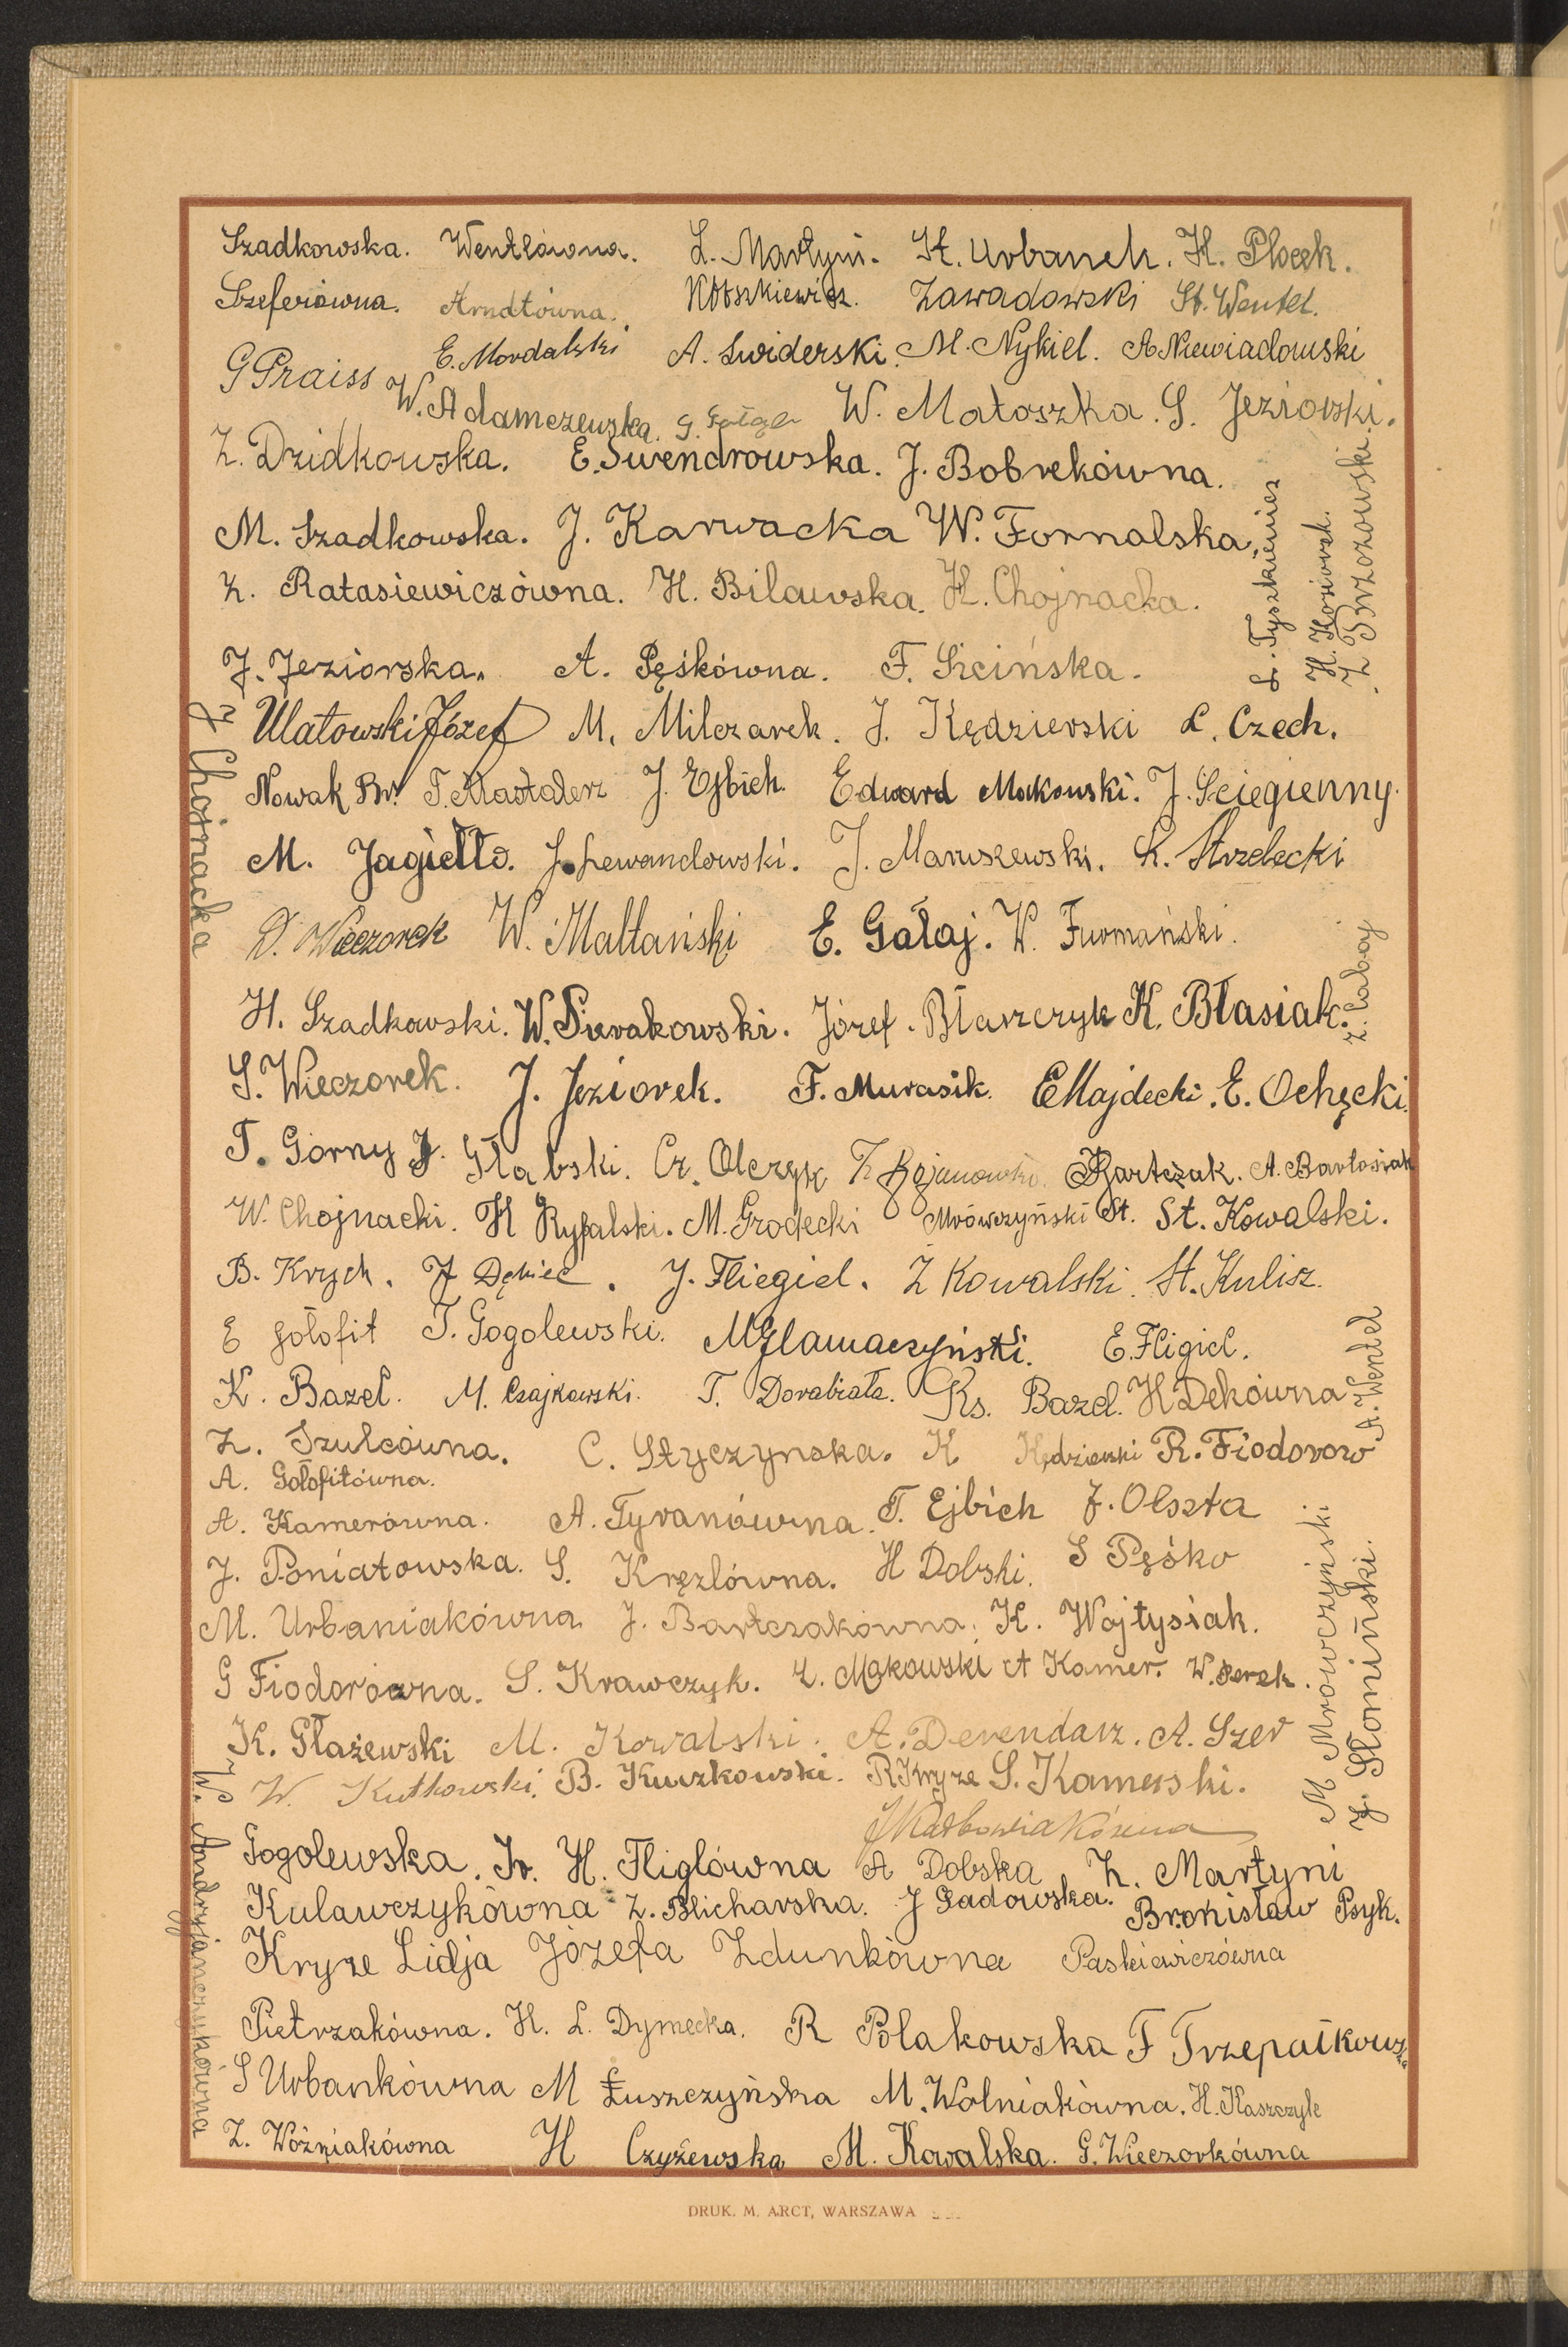 Szadkowska. Wentlówna. L. Martyni. St. Urbanek. H. Plocek.
Szeferówna. Arndtówna. Zawadowski St. Wentel.
G Praiss E. Mordalski A. Swiderski. M. Nykiel. A Niewiadowski
W. Adamczewska. W. Matoszka. S. Jeziorski.
Z. Dzidkowska. E. Swendrowska. J. Bobrekówna.
M. Szadkowska. J. Karwacka W. Fornalska,
Z. Ratasiewiczówna. H. Bilawska. H. Chojnacka.
J. Jeziorska. A. Pęśkówna. F. Sicińska.
Ulatowski Józef M. Milczarek. J. Kędzierski L. Czech.
Nowak Br. J. Ejbich. Edward Makowski. J. Sciegienny.
M. Jagiełło. J. Lewandowski. J. Maruszewski. K. Strzelecki
Wieczorek W. Maltański E. Gałaj. W. Furmański.
H. Szadkowski. W. Sierakowski. Józef. Błaszczyk K. Błasiak.
S. Wieczorek. J. Jeziorek. F. Murasik. E Majdecki. E. Ochęcki.
T. Górny J. Głąbski. Cz. Olczyk Bojanowski. Bartczak. A. Bartosiak
W. Chojnacki. H Ryfalski. M. Grodecki Mrówczyński St. St. Kowalski.
B. Krych. J Dębiec. J. Fliegiel. Z Kowalski. St. Kulisz.
E Gołofit T. Gogolewski. E. Fligiel.
K. Bazel. M. Czajkowski. T. Dorabiała. Ks. Bazel. H Dekówna
Z. Szulcówna. C. Styczynska. K Kędzierski R. Fiodorow
A. Gołofitówna.
A. Kamerówna. A. Tyranówna. T. Ejbich J. Olszta
J. Poniatowska. S. Kręzlówna. H Dolski. S Pęśko
M. Urbaniakówna J. Bartczakówna. K. Wojtysiak.
G Fiodorówna. S. Krawczyk. Z. Makowski A Kamer. W. Serek.
K. Głażewski M. Kowalski. A. Derendarz. A. Szer
W. Kutkowski. B. Kuczkowski. R Kryze S. Kamerski.
Gogolewska. Ir. H. Fliglówna A Dobska Z. Martyni
Kulawczykówna Z. Blicharska. J Sadowska. Bronisław Psyk.
Kryze Lidja Józefa Zdunkówna Paskiewiczówna
Pietrzakówna. H. L. Dymecka. R Polakowska F Trzepałkowska
S Urbankówna M Łuszczyńska M. Wolniakówna. H. Kaszczyk
Z. Woźniakówna H Czyżewska M. Kowalska. G. Wieczorkówna
Z Chojnacka
W. Andryjańczukówna
Tyszkiewicz
H. Koziorek.
Z Brzozowski.
Z. Cabaj
A. Wentel
M Mrowczyński
J. Słomiński.
DRUK. M. ARCT, WARSZAWA